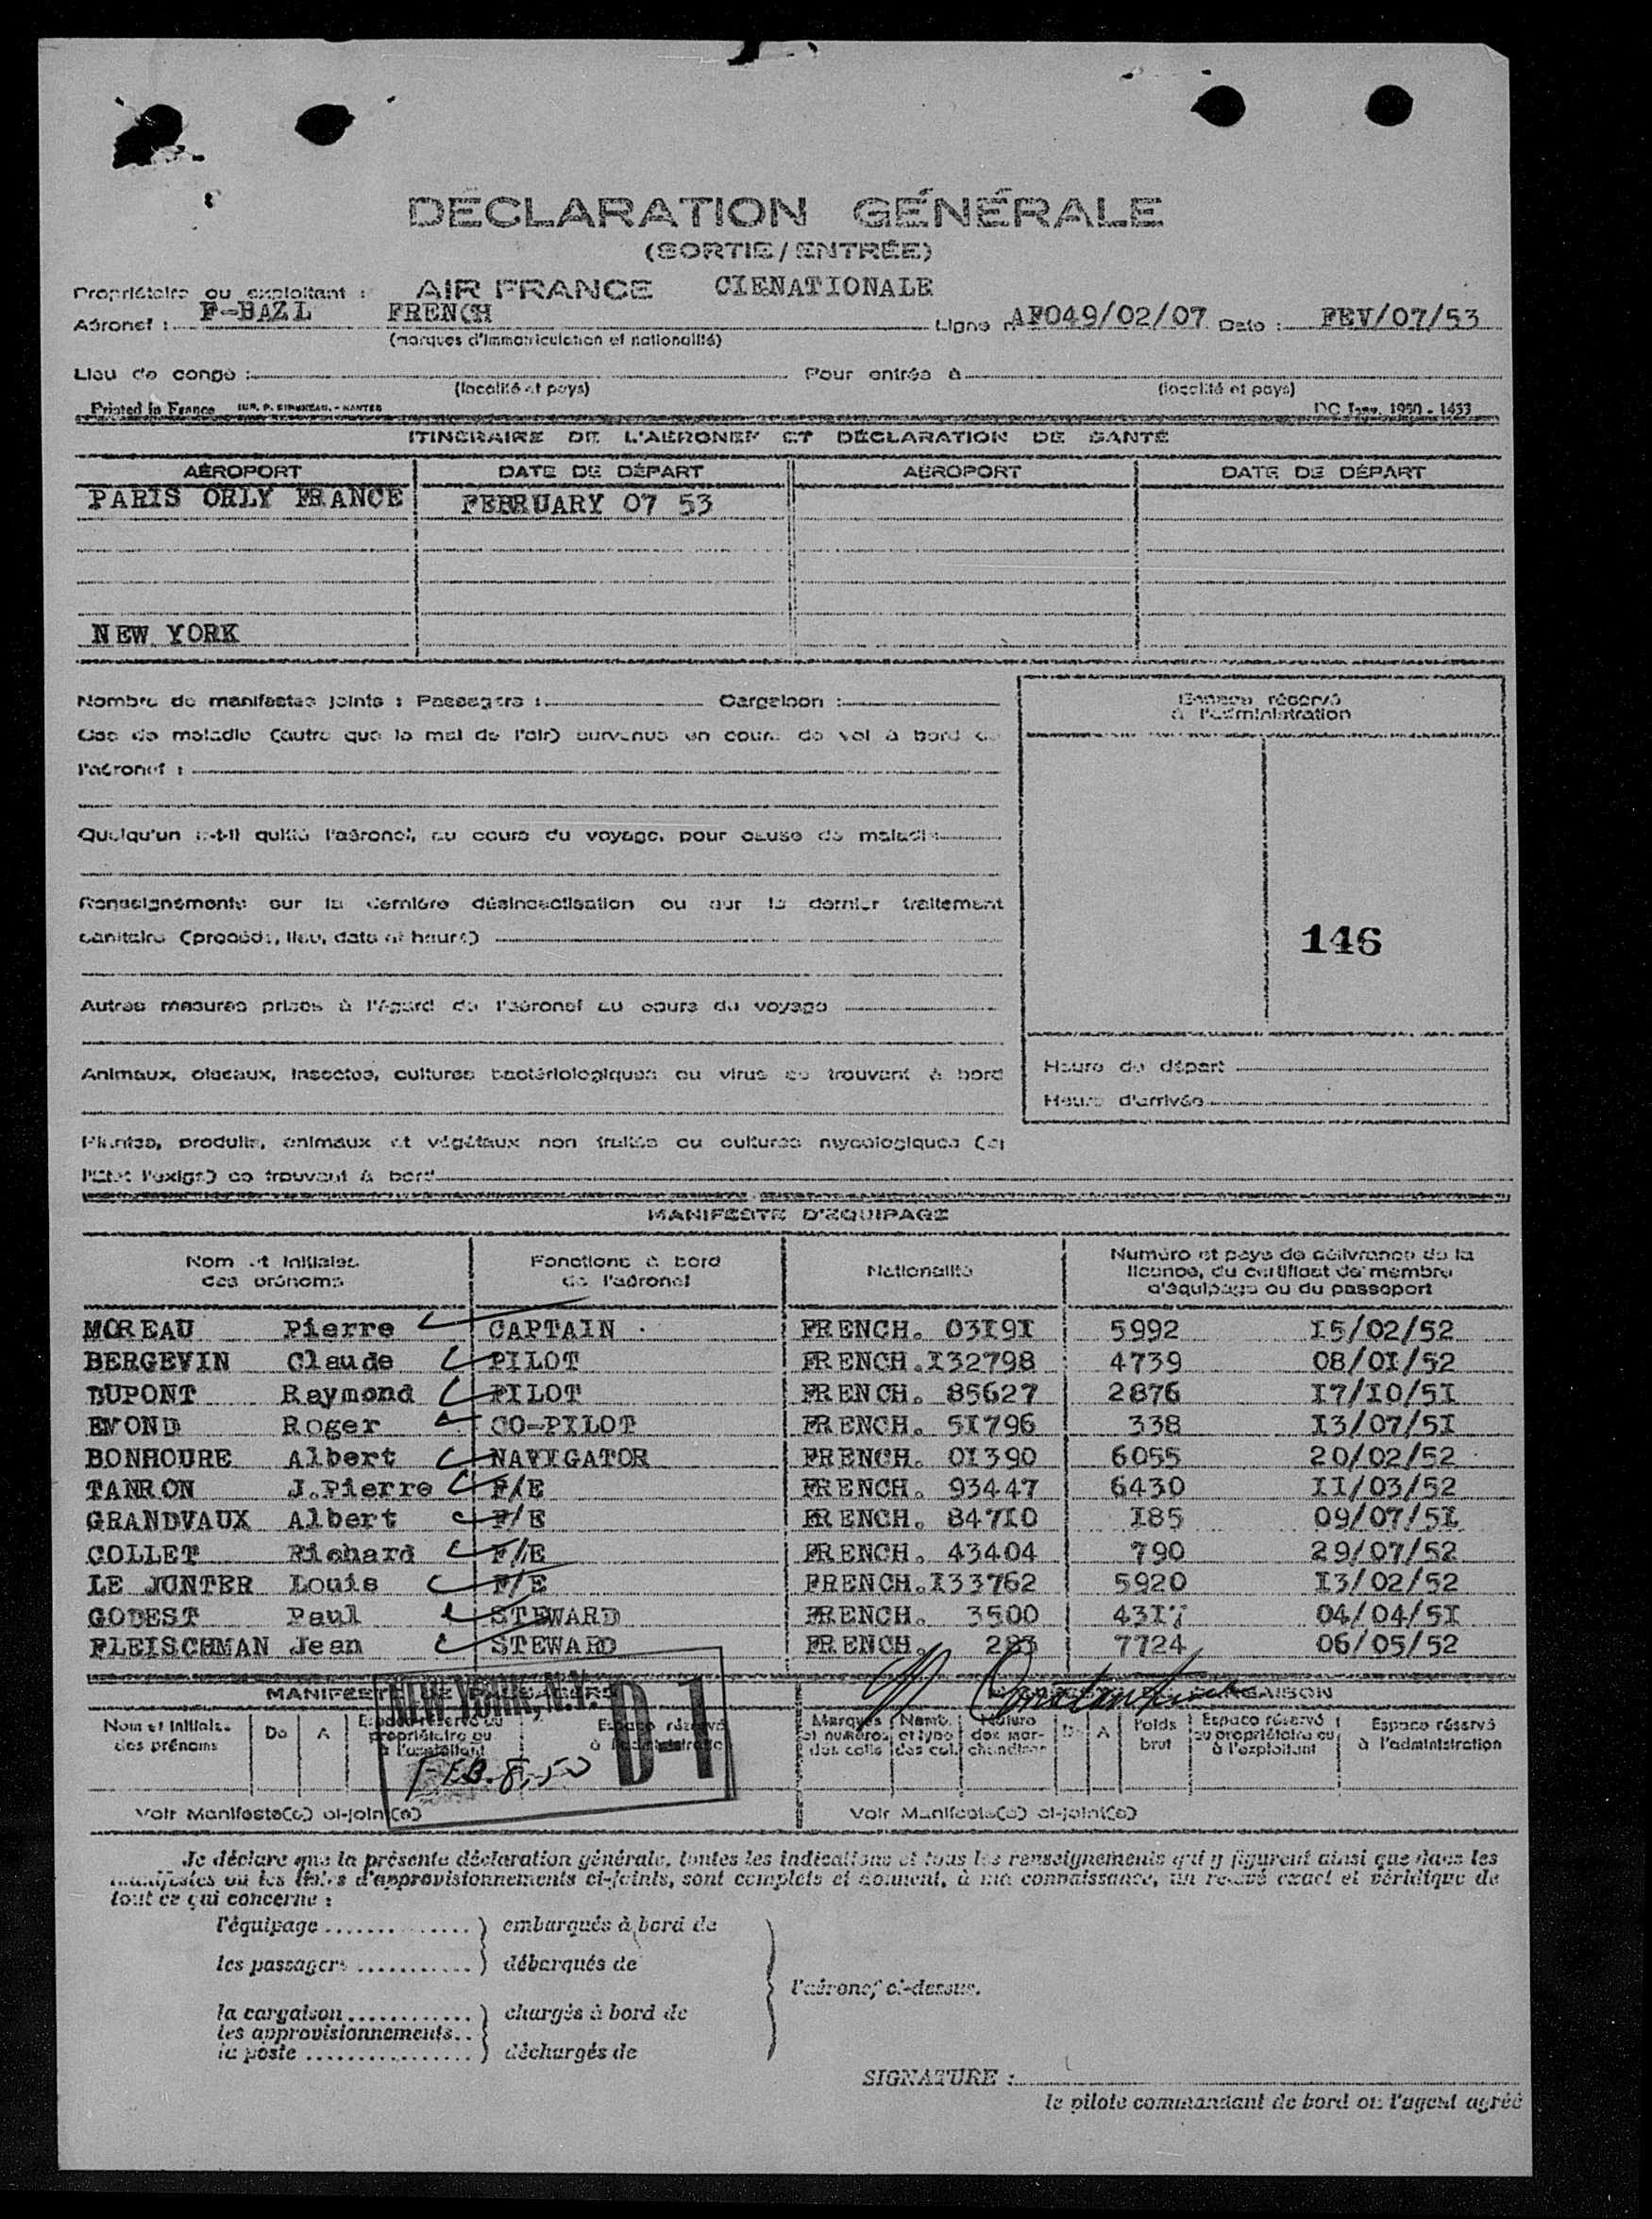 DÉCLARATION GÉNÉRALE
(SORTIE/ENTRÉE)
Propriétaire ou exploitant : AIR FRANCE CIENATIONALE
Aéronef : F-BAZL FRENCH Ligne n AF049/02/07 Date : FEV/07/53
(marques d'immatriculation et nationalité)
Lieu de congé : Pour entrée à
(localité et pays) (localité et pays)
Printed in France - NANTES DC Janv. 1950 - 1433
ITINÉRAIRE DE L'AÉRONEF ET DÉCLARATION DE SANTÉ
AÉROPORT DATE DE DÉPART AÉROPORT DATE DE DÉPART
PARIS ORLY FRANCE FEBRUARY 07 53
NEW YORK
Nombre de manifestes joints : Passagers : Cargaison :
Cas de maladie (autre que le mal de l'air) survenus en cours de vol à bord de
l'aéronef :
Quelqu'un a-t-il quitté l'aéronef, au cours du voyage, pour cause de maladie
Renseignements sur la dernière désinsectisation ou sur le dernier traitement
sanitaire (procédé, lieu, date et heure)
Autres mesures prises à l'égard de l'aéronef au cours du voyage
Animaux, oiseaux, insectes, cultures bactériologiques ou virus se trouvant à bord
Plantes, produits, animaux et végétaux non traités ou cultures mycologiques (si
l'Etat l'exige) se trouvant à bord
Espace réservé
à l'administration
146
Heure de départ
Heure d'arrivée
MANIFESTE D'ÉQUIPAGE
Nom et initiales des prénoms Fonctions à bord de l'aéronef Nationalité Numéro et pays de délivrance de la licence, du certificat de membre d'équipage ou du passeport
MOREAU Pierre CAPTAIN FRENCH. 03I9I 5992 I5/02/52
BERGEVIN Claude PILOT FRENCH.I32798 4739 08/0I/52
DUPONT Raymond PILOT FRENCH. 85627 2876 I7/I0/5I
EMOND Roger CO-PILOT FRENCH. 5I796 338 I3/07/5I
BONHOURE Albert NAVIGATOR FRENCH. 0I390 6055 20/02/52
TANRON J.Pierre F/E FRENCH. 93447 6430 II/03/52
GRANDVAUX Albert F/E FRENCH. 847I0 I85 09/07/5I
COLLET Richard F/E FRENCH. 43404 790 29/07/52
LE JUNTER Louis F/E FRENCH.I33762 5920 I3/02/52
GODEST Paul STEWARD FRENCH. 3500 43I7 04/04/5I
FLEISCHMAN Jean STEWARD FRENCH. 283 7724 06/05/52
MANIFESTE DE PASSAGERS CARGAISON
NEW YORK, N.Y. D-1
Nom et initiales des prénoms De A Espace réservé au propriétaire ou à l'exploitant Espace réservé à l'administration Marques et numéros des colis Nomb. et type des col. Nature des marchandises De A Poids brut Espace réservé au propriétaire ou à l'exploitant Espace réservé à l'administration
Voir Manifeste(s) ci-joint(s) Voir Manifeste(s) ci-joint(s)
Je déclare que la présente déclaration générale, toutes les indications et tous les renseignements qui y figurent ainsi que dans les
manifestes ou les listes d'approvisionnements ci-joints, sont complets et donnent, à ma connaissance, un relevé exact et véridique de
tout ce qui concerne :
l'équipage embarqués à bord de
les passagers débarqués de
l'aéronef ci-dessus.
la cargaison chargés à bord de
les approvisionnements
la poste déchargés de
SIGNATURE :
le pilote commandant de bord ou l'agent agréé